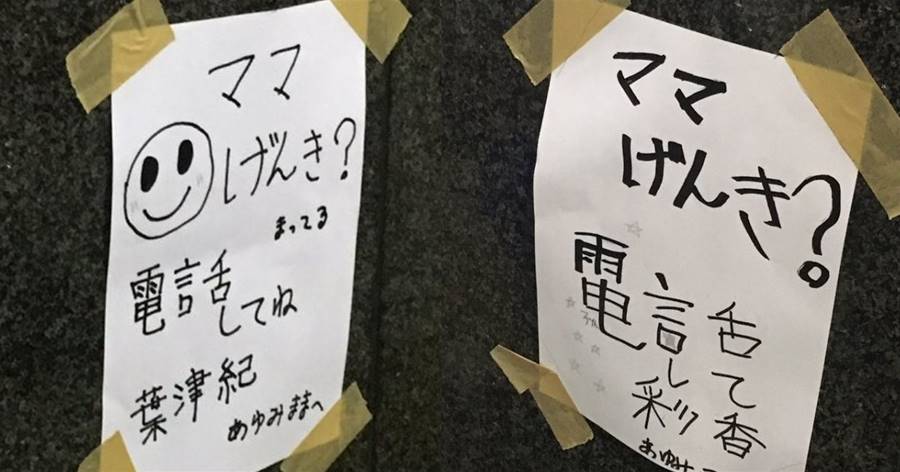 ママ
げんき?
まってる
電話
してね
葉津紀
あゆみままへ
ママ
げんき?
電話
して
彩香